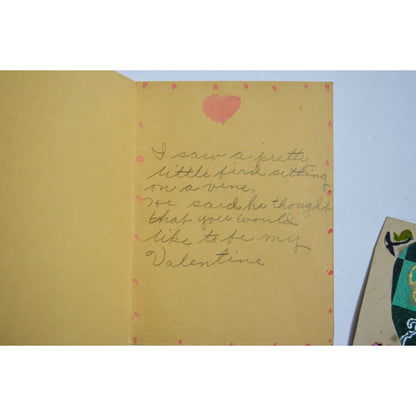 I saw a pretty
little bird sitting
on a vine,
He said he thought
that you would
like to be my
Valentine